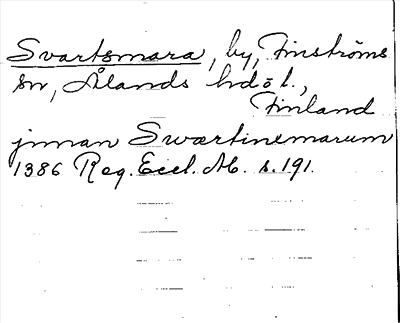 Svartsmara, by, Finströms
sn, Ålands hd o l.,
Finland
jnnan Swærtinemarum
1386 Reg. Eccl. Ab. s. 191.